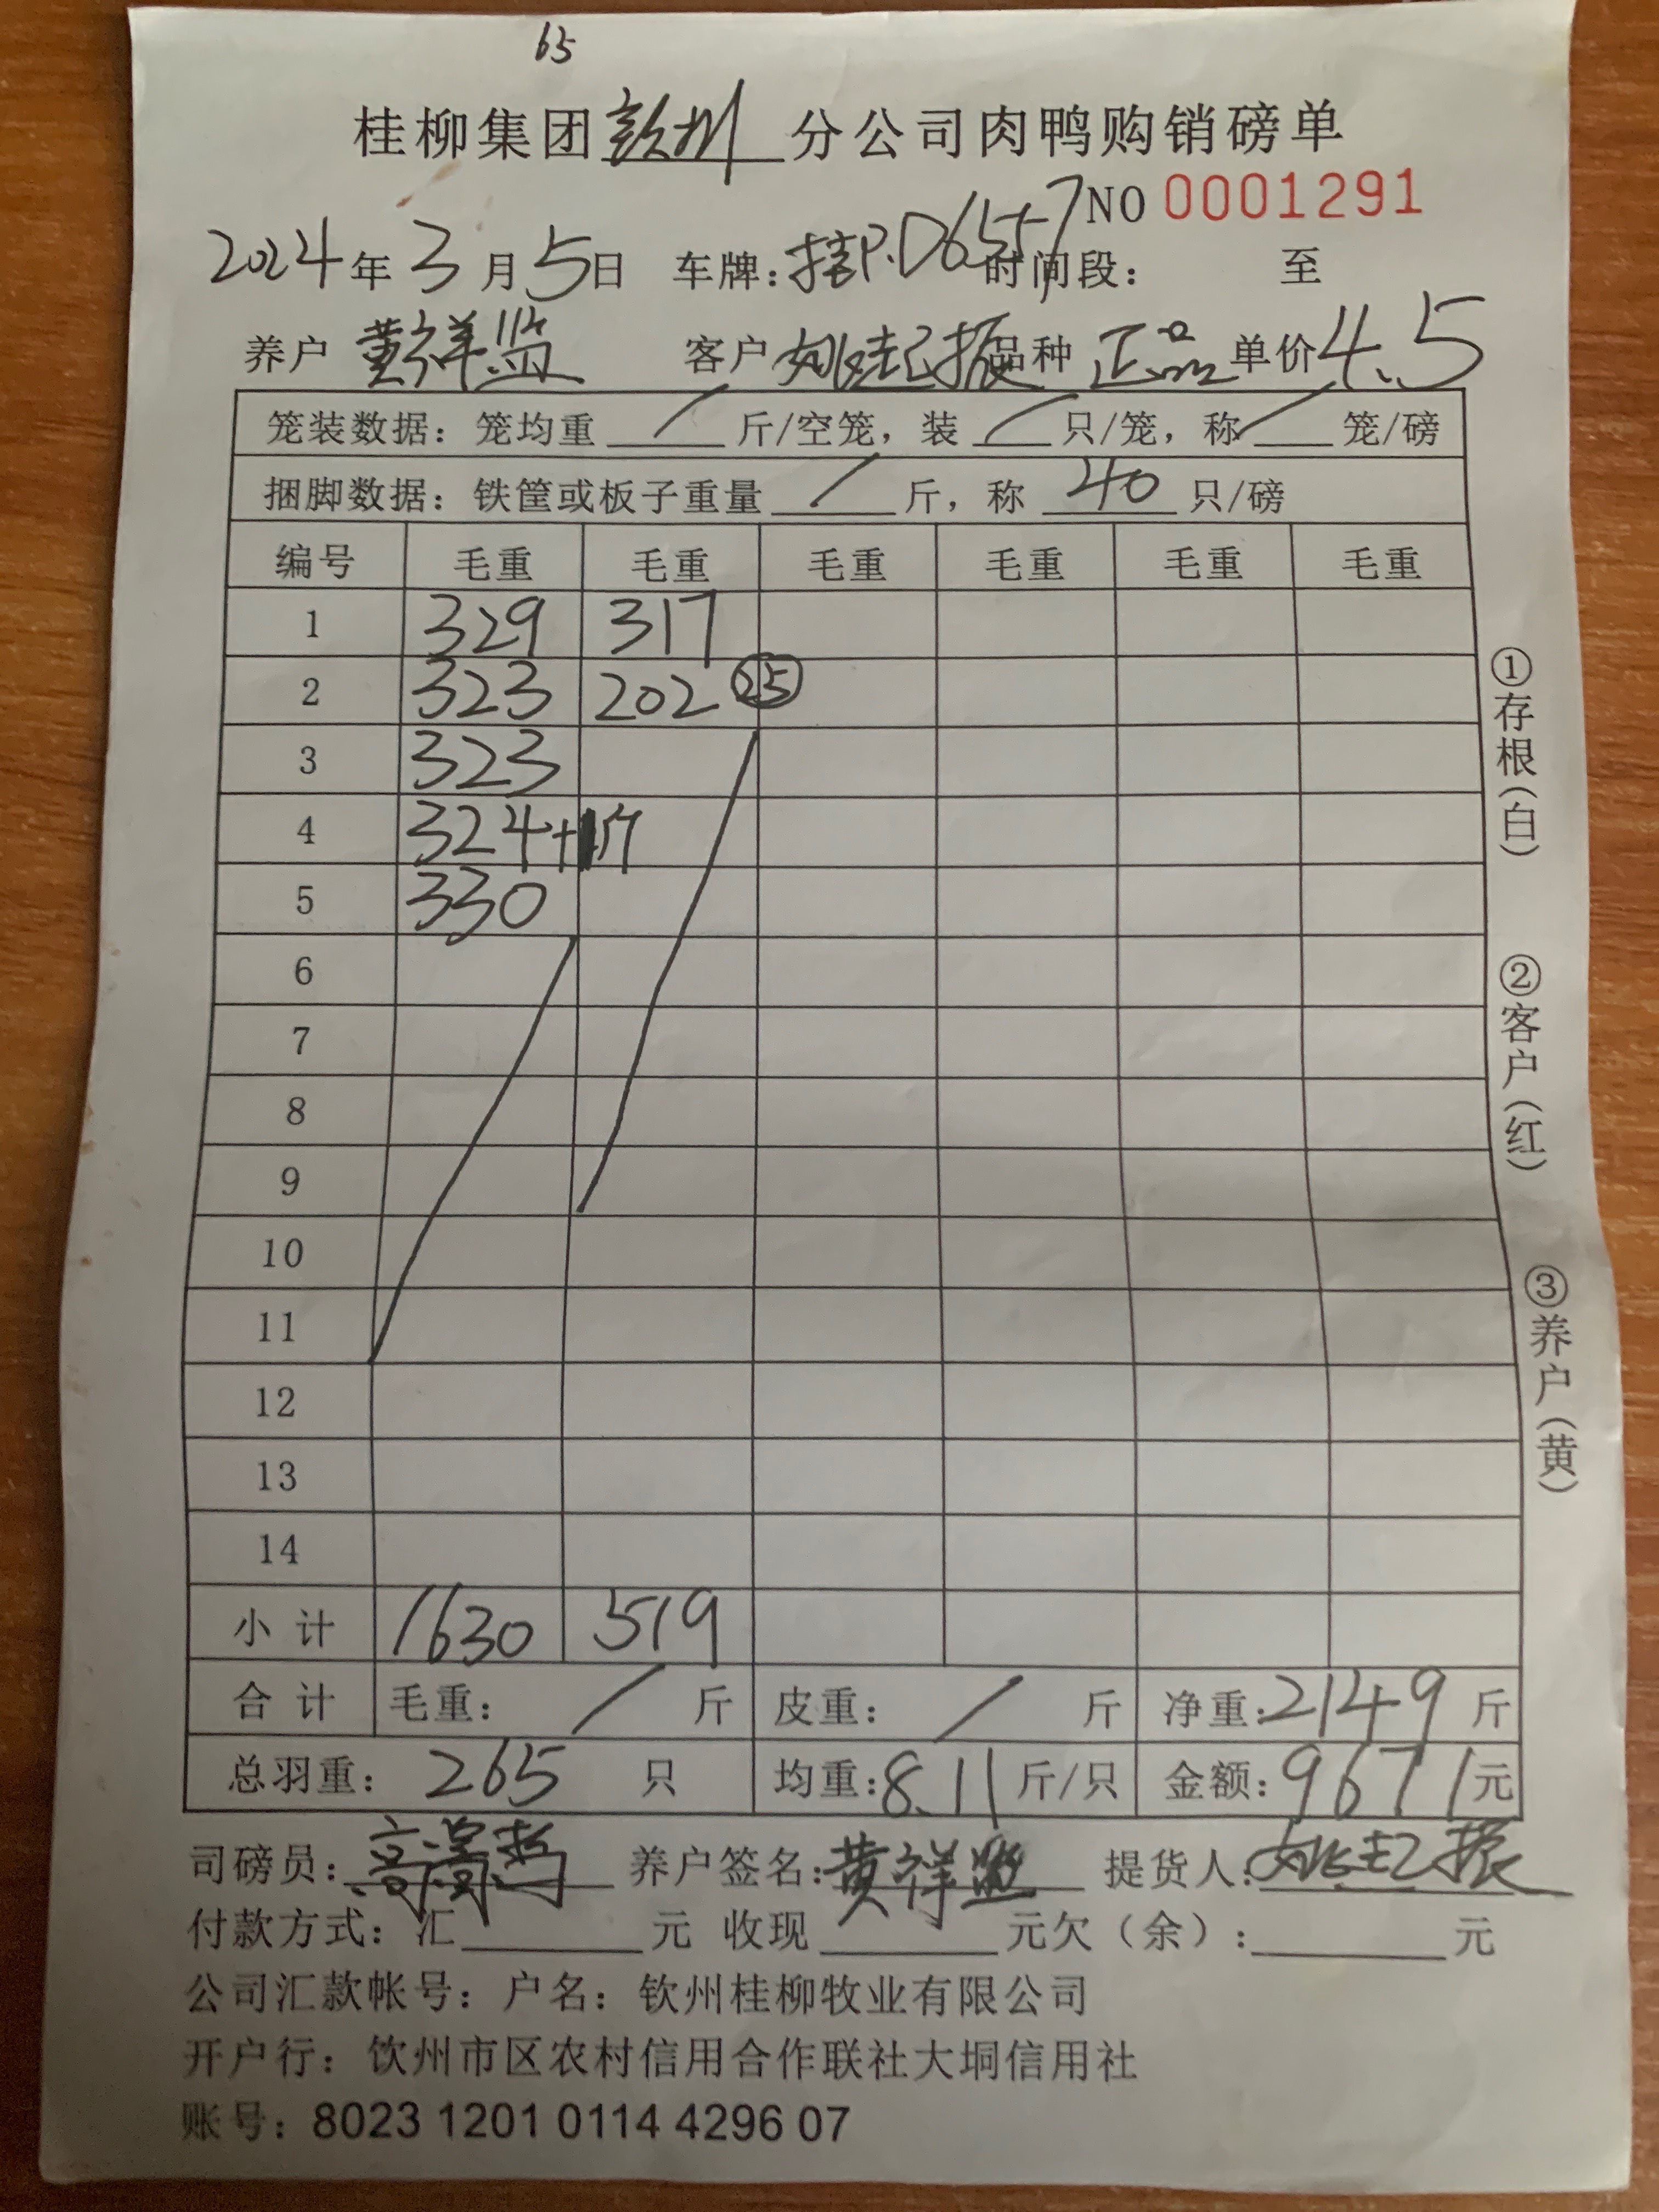 65
桂柳集团钦州分公司肉鸭购销磅单
NO 0001291
2024年3月5日 车牌:桂P.D6557 时间段: 至
养户 黄祥监 客户 姚起振 品种 正品 单价 4.5
笼装数据: 笼均重 / 斤/空笼, 装 / 只/笼, 称 / 笼/磅
捆脚数据: 铁筐或板子重量 / 斤, 称 40 只/磅
编号 毛重 毛重 毛重 毛重 毛重 毛重
1 329 317
2 323 202 ㉕
3 323
4 324+1只
5 330
6
7
8
9
10
11
12
13
14
小计 1630 519
合计 毛重: / 斤 皮重: / 斤 净重:2149 斤
总羽重: 265 只 均重:8.11 斤/只 金额:9671元
司磅员: 养户签名:黄祥监 提货人:姚起振
付款方式: 汇 元 收现 元欠(余): 元
公司汇款帐号: 户名: 钦州桂柳牧业有限公司
开户行: 钦州市区农村信用合作联社大垌信用社
账号: 8023 1201 0114 4296 07
①存根(白)
②客户(红)
③养户(黄)